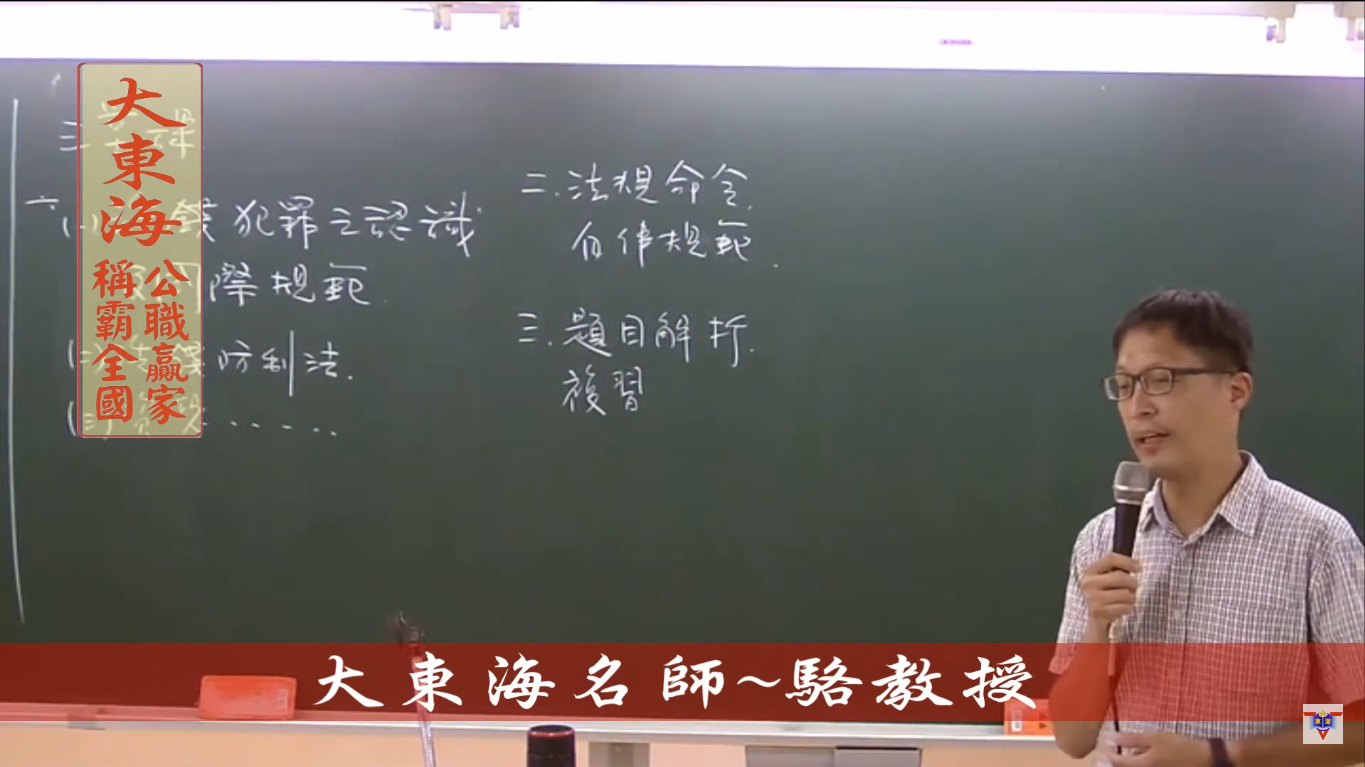 大東海
公職贏家
稱霸全國
三堂課
一、
錢犯罪之認識
國際規範.
洗錢防制法.
二.法規命令.
自律規範.
三.題目解析.
複習
大東海名師~駱教授